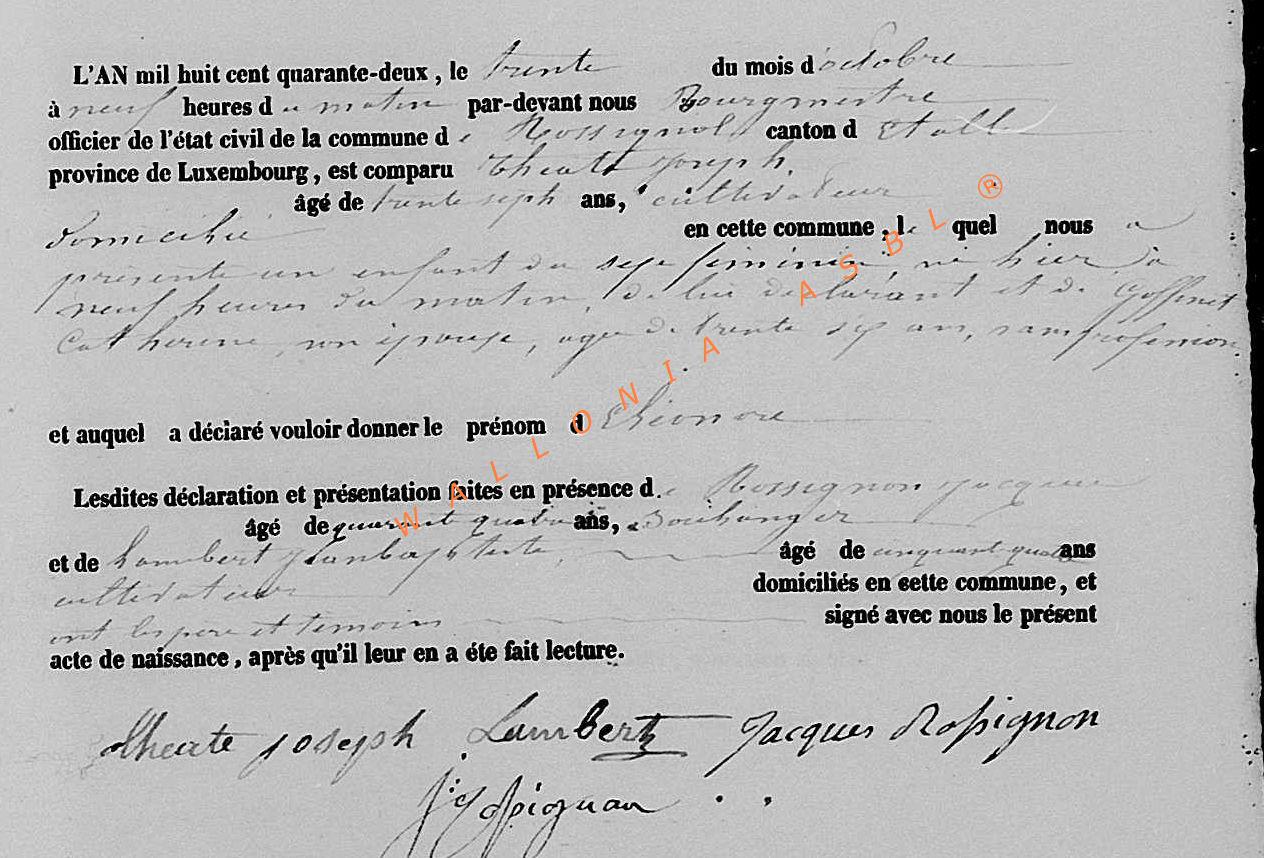 L'AN mil huit cent quarante-deux, le trente du mois d'octobre
à neuf heures du matin par-devant nous Bourgmestre
officier de l'état civil de la commune de Rossignol canton d Etalle
province de Luxembourg, est comparu Theate Joseph,
âgé de trente seph ans, cultivateur
domicilié en cette commune, le quel nous a
présenté un enfant du sexe féminin, né hier à
neuf heures du matin, de lui déclarant et de Goffinet
Catherine, son épouse, agée de trente six ans, sans profession.
et auquel a déclaré vouloir donner le prénom d Eléonore
Lesdites déclaration et présentation faites en présence de Rossignon Jacques
âgé de quarant quatre ans, Boulanger
et de Lambert Jeanbaptiste, âgé de cinquant quatre ans
cultivateur domiciliés en cette commune, et
ont les père et témoins signé avec nous le présent
acte de naissance, après qu'il leur en a été fait lecture.
theate joseph Lambert Jacques Rossignon
WALLONIA ASBL ®